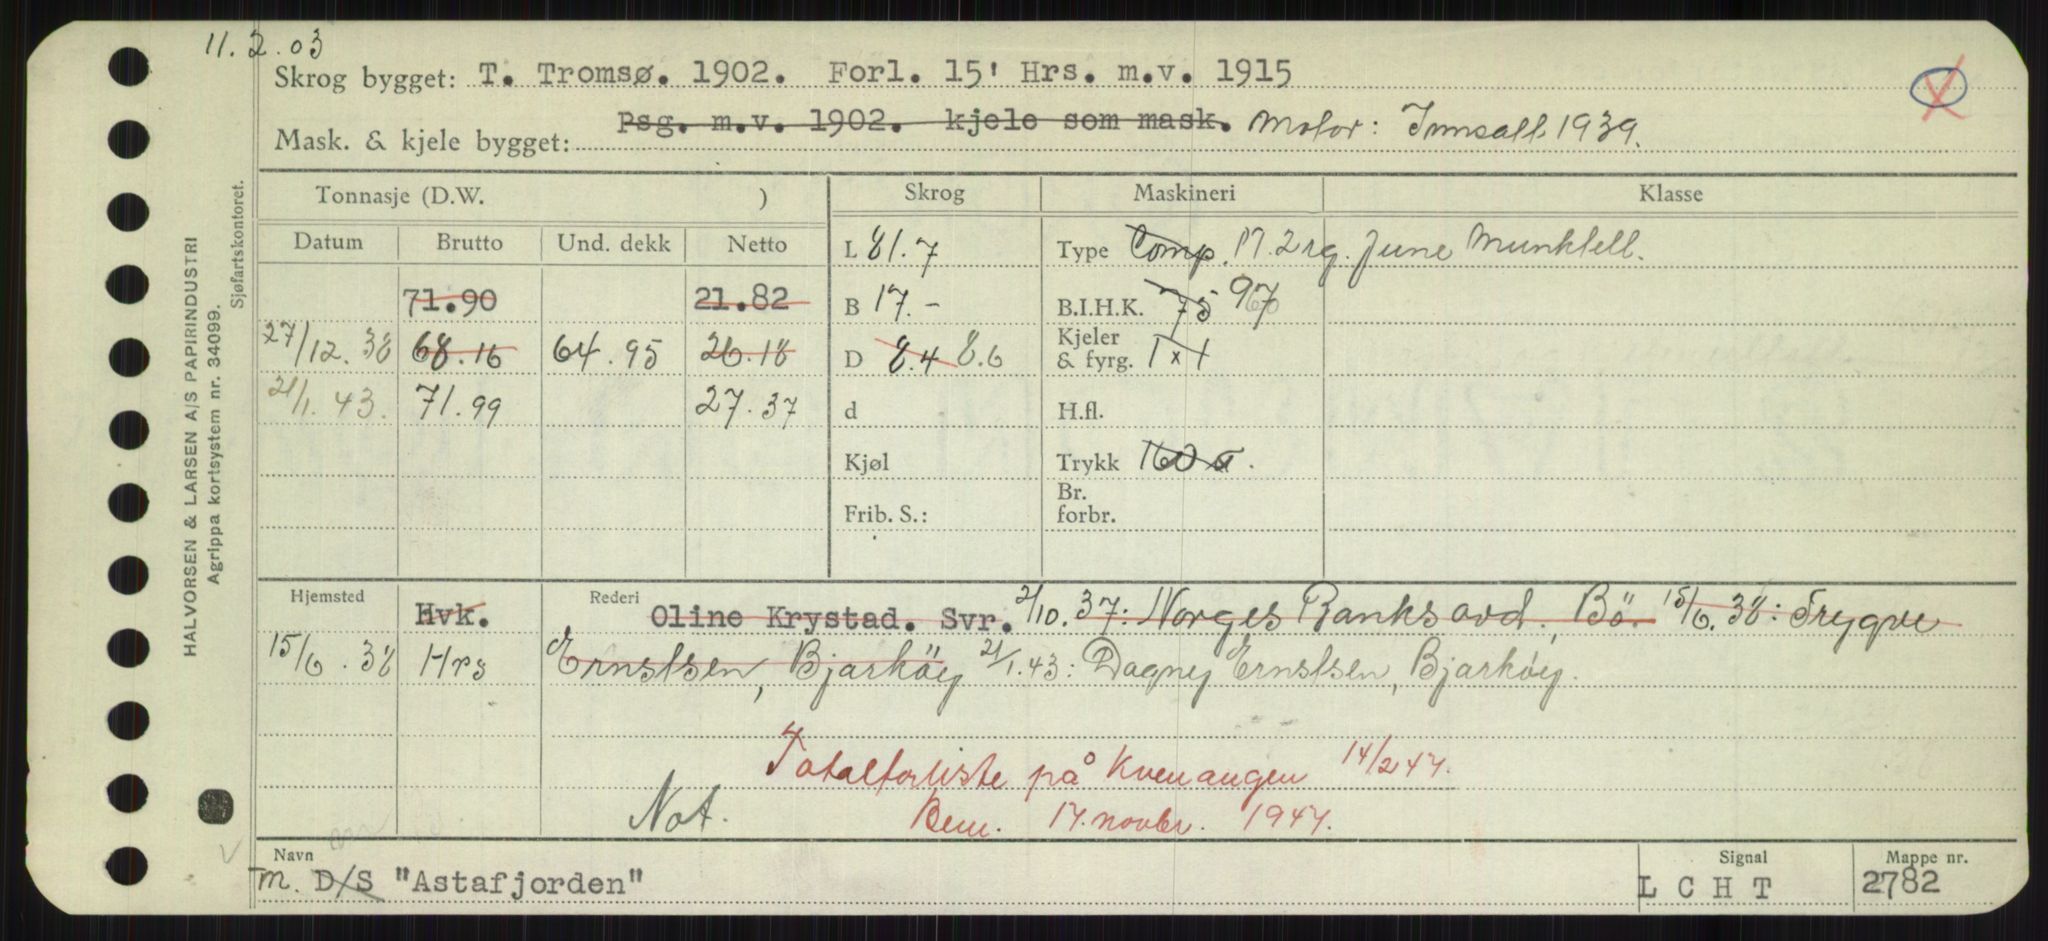 11.2.03
Skrog bygget: T. Tromsø. 1902. Forl. 15' Hrs. m.v. 1915
Psg. m.v. 1902. kjele som mask. Motor: Innsatt 1939.
Mask. & kjele bygget:
Tonnasje (D.W. ) Skrog Maskineri Klasse
Datum Brutto Und. dekk Netto
L 81.7 Type Comp. M. 2 rg. June Munktell.
71.90 21.82 B 17.- B.I.H.K. 75 90
27/12.38 68.16 64.95 26.18 D 8.4 8.6 Kjeler & fyrg. 1 x 1
21/1.43. 71.99 27.37 d H.fl.
Kjøl Trykk 160
Frib. S.: Br. forbr.
Hjemsted Rederi
Hvk. Oline Krystad. Svr. 2/10.37: Norges Banks avd., Bö. 15/6.38: Trygve
15/6.38 Hrs Ernstsen, Bjarköy 21/1.43: Dagny Ernstsen, Bjarköy.
Totalforliste på Kvenangen 14/2 47.
Not. Bem. 17. novbr. 1947.
Navn Signal Mappe nr.
M. D/S "Astafjorden" L C H T 2782
HALVORSEN & LARSEN A/S PAPIRINDUSTRI
Agrippa kortsystem nr. 34099.
Sjøfartskontoret.